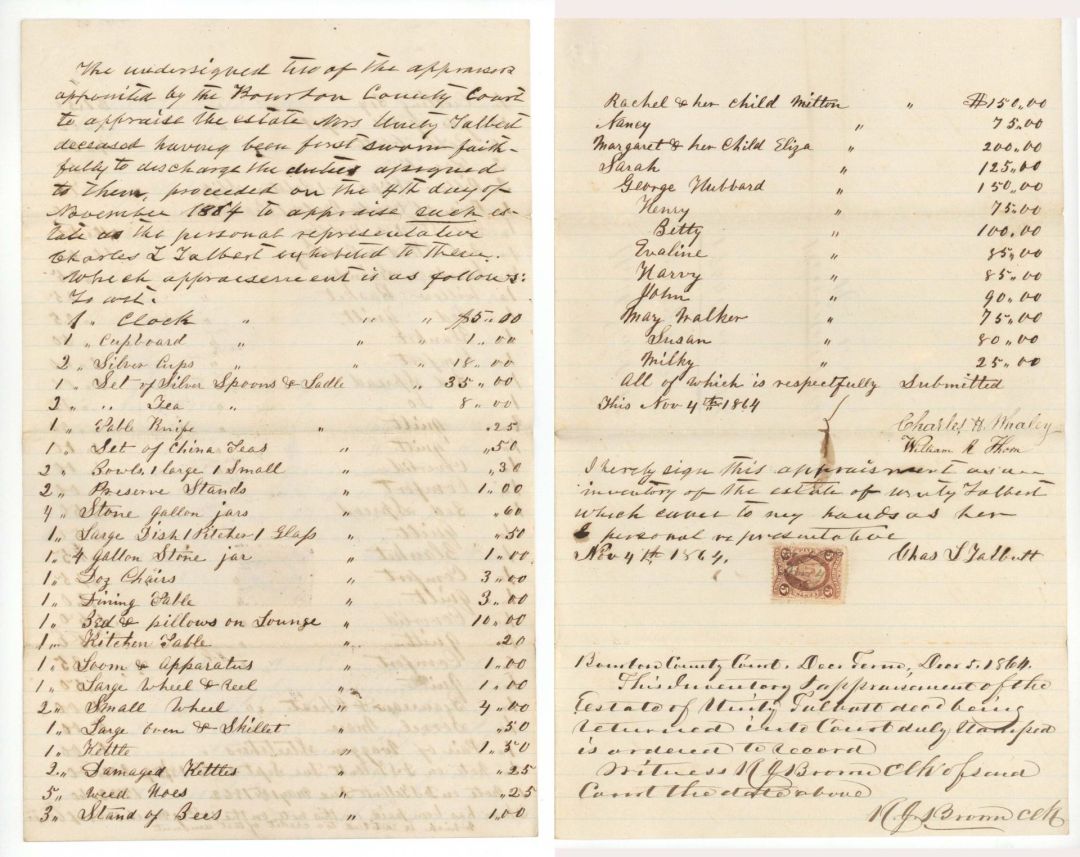 The undersigned two of the appraisors
appointed by the Bourbon County Court
to appraise the estate Mrs Unity Talbert
deceased having been first sworn faith-
fully to discharge the duties assigned
to them, proceeded on the 4th day of
November 1864 to appraise such es-
tate as the personal representative
Charles T Talbert exhibited to them.
Which appraisement is as follows:
To wit.
1 " Clock " " " $5.00
1 " Cupboard " " 1.00
2 " Silver Cups " " 18.00
1 " Set of Silver Spoons & Ladle " 35.00
2 " " Tea " 8.00
1 " Table Knife " .25
1 " Set of China Teas " .50
2 " Bowls, 1 large 1 Small " .30
2 " Preserve Stands " 1.00
4 " Stone gallon jars " .60
1 " Large Dish 1 Pitcher 1 Glass " .50
1 " 4 gallon Stone jar " 1.00
1 " Doz Chairs " 3.00
1 " Dining Table " 3.00
1 " Bed & pillows on Lounge " 10.00
1 " Kitchen Table " .20
1 " Loom & apparatus " 1.00
1 " Large Wheel & Reel " 1.00
2 " Small Wheel " 4.00
1 " Large oven & Skillet " .50
1 " Kettle " 1.50
2 " Damaged Kettles " .25
5 " Weed Hoes " .25
3 " Stand of Bees 1.00
Rachel & her child Milton " $150.00
Nancy " 75.00
Margaret & her Child Eliza " 200.00
Sarah " 125.00
George Hubbard " 150.00
Henry " 75.00
Betty " 100.00
Evaline " 85.00
Harvy " 85.00
John " 90.00
May Walker " 75.00
Susan " 80.00
Milky " 25.00
All of which is respectfully Submitted
This Nov 4th 1864
Charles H. Whaley
William R Thom
I hereby sign this appraisment as an
inventory of the estate of Unity Talbert
which came to my hands as her
personal representative
Nov 4th. 1864. Chas T Talbutt
Bourbon County Court. Decr Term, Decr 5. 1864.
This Inventory & appraisement of the
Estate of Unity Talbutt decd being
returned into Court duly Stamped
is ordered to record
Witness R J Brown Clk of said
Court the date above
R. J. Brown Clk